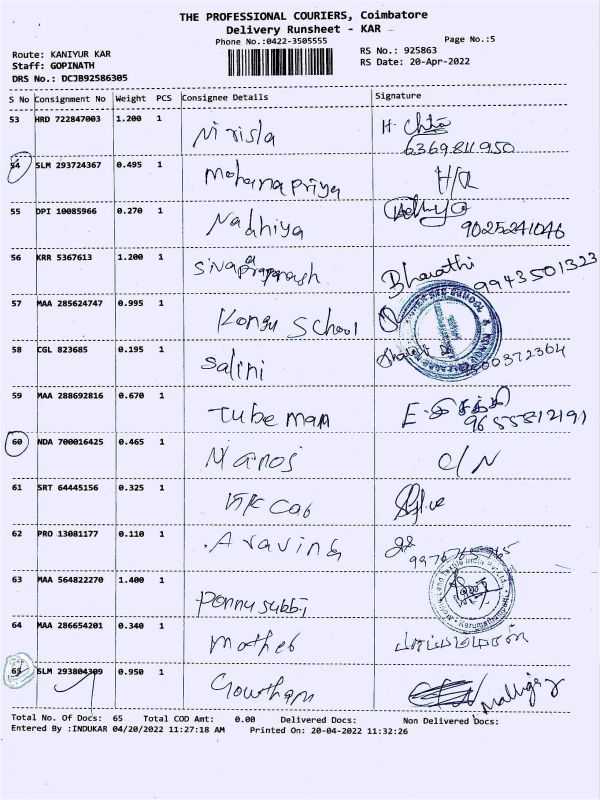 THE PROFESSIONAL COURIERS, Coimbatore
Delivery Runsheet - KAR
Phone No.:0422-3505555 Page No.:5
Route: KANIYUR KAR RS No.: 925863
Staff: GOPINATH RS Date: 20-Apr-2022
DRS No.: DCJB92586305
S No Consignment No Weight PCS Consignee Details Signature
53 HRD 722847003 1.200 1 Nirisla H.
6369811950
54 SLM 293724367 0.495 1 Mohana Priya
55 DPI 10085966 0.270 1 Nadhiya
9025241046
56 KRR 5367613 1.200 1 Sivapraprakash Bharathi
9943501323
57 MAA 285624747 0.995 1 Kongu School
58 CGL 823685 0.195 1 Salini
59 MAA 288692816 0.670 1 Tube mam
9655812191
60 NDA 700016425 0.465 1 Manoj C/N
61 SRT 64445156 0.325 1
62 PRO 13081177 0.110 1 Aravind
63 MAA 564822270 1.400 1 Ponnusubbi
64 MAA 286654201 0.340 1 Mother
65 SLM 293804309 0.950 1 Gowtham
Total No. Of Docs: 65 Total COD Amt: 0.00 Delivered Docs: Non Delivered Docs:
Entered By :INDUKAR 04/20/2022 11:27:18 AM Printed On: 20-04-2022 11:32:26